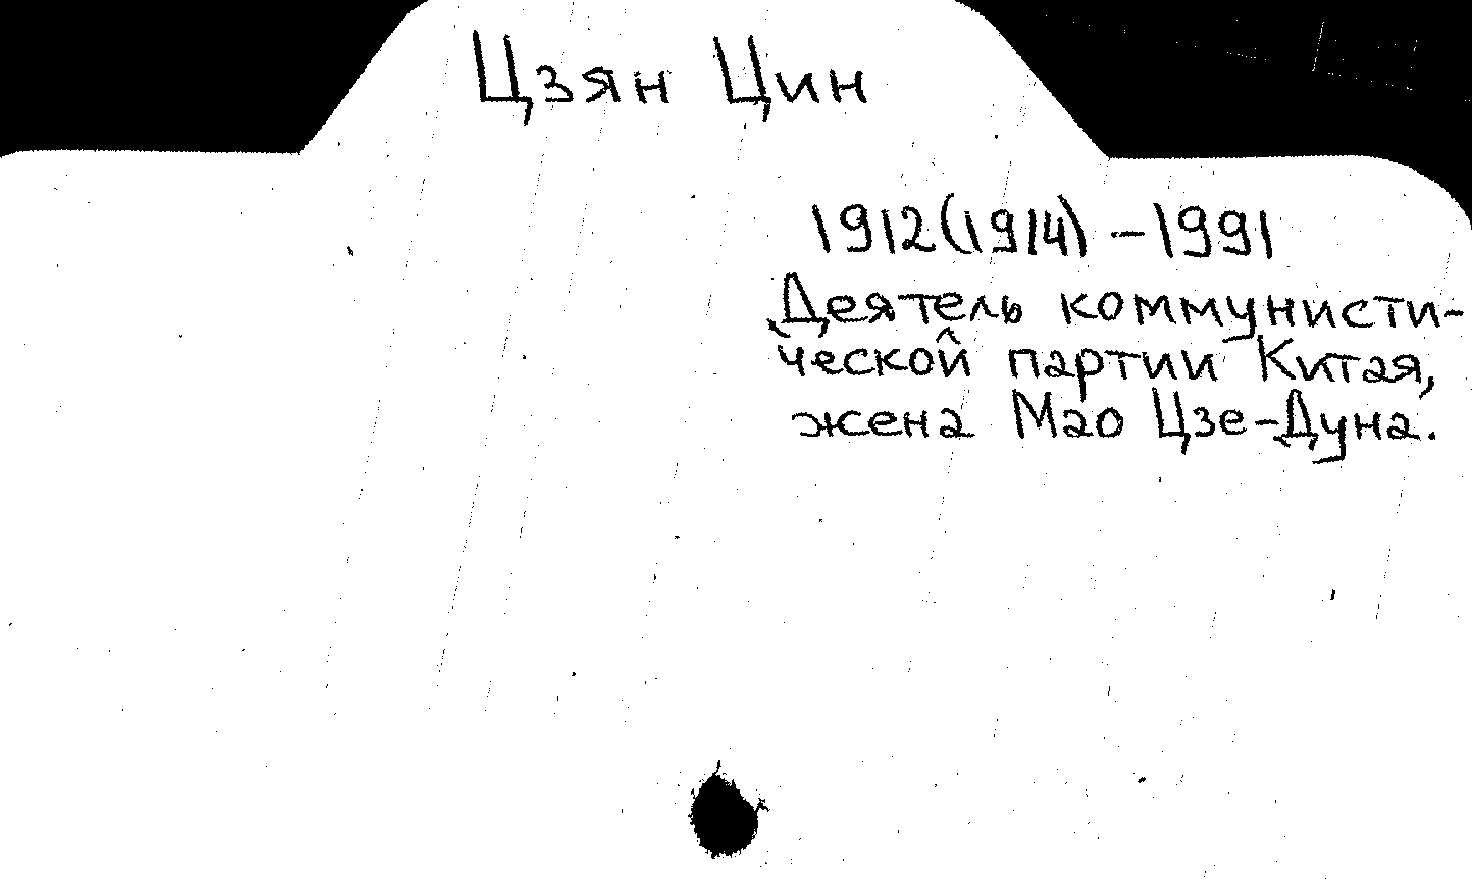 Цзян Цин
1912(1914) – 1991
Деятель коммунисти-
ческой партии Китая,
жена Мао Цзе-Дуна.